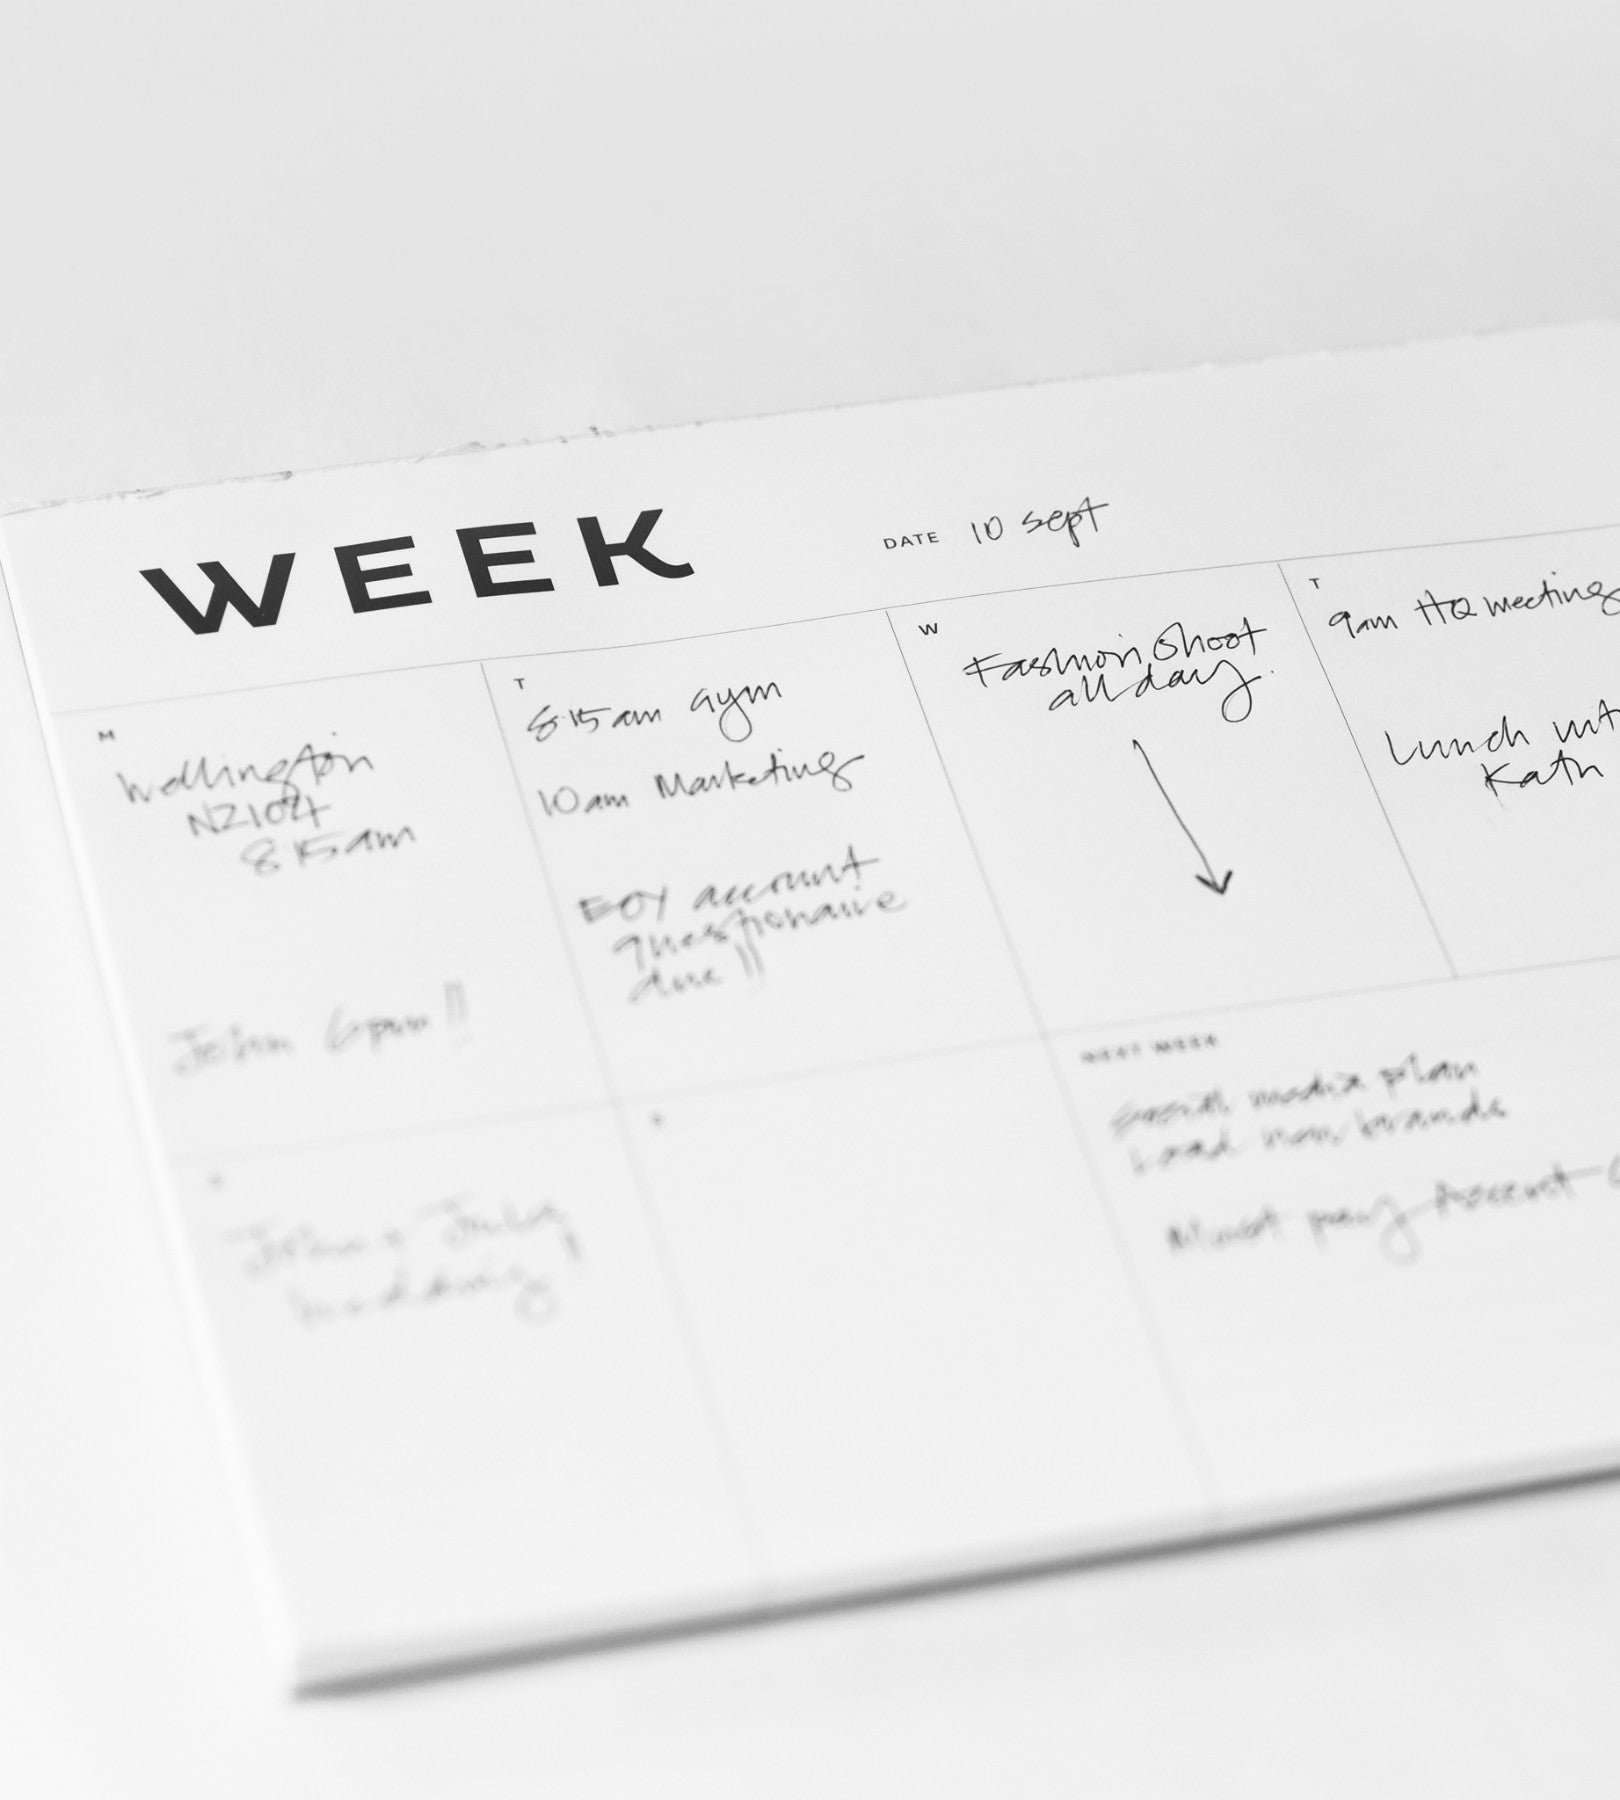 WEEK
DATE 10 sept
M
Wellington
NZ104
8.15am
John 6pm!!
T
8.15am gym
10am Marketing
EOY account
questionaire
due!!
W
Fashion Shoot
all day.
T
9am HQ meeting
Lunch
Kath
S
John & Judy
wedding!
S
NEXT WEEK
Social media plan
Load new brands
Must pay Accent